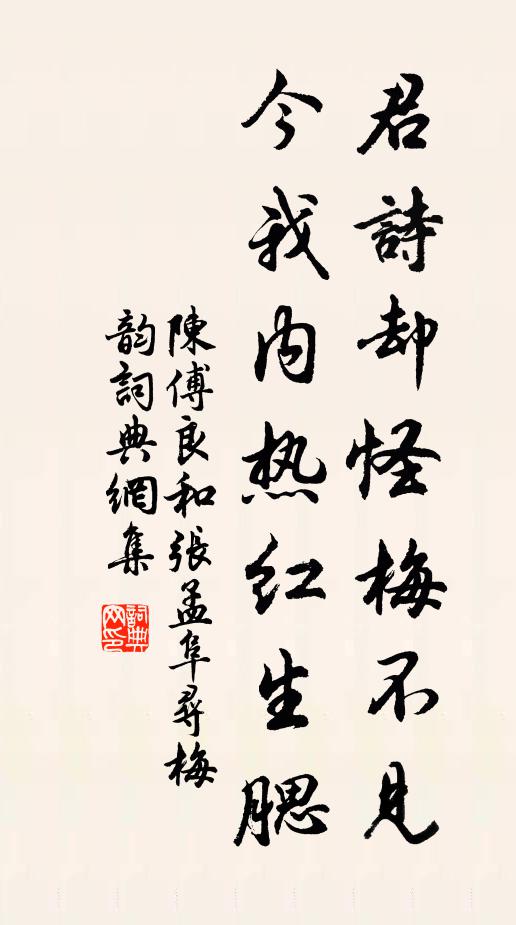 君詩却怪梅不見
今我内热紅生腮
陳傅良和張孟阜尋梅
韵詞典網集
詞典網印